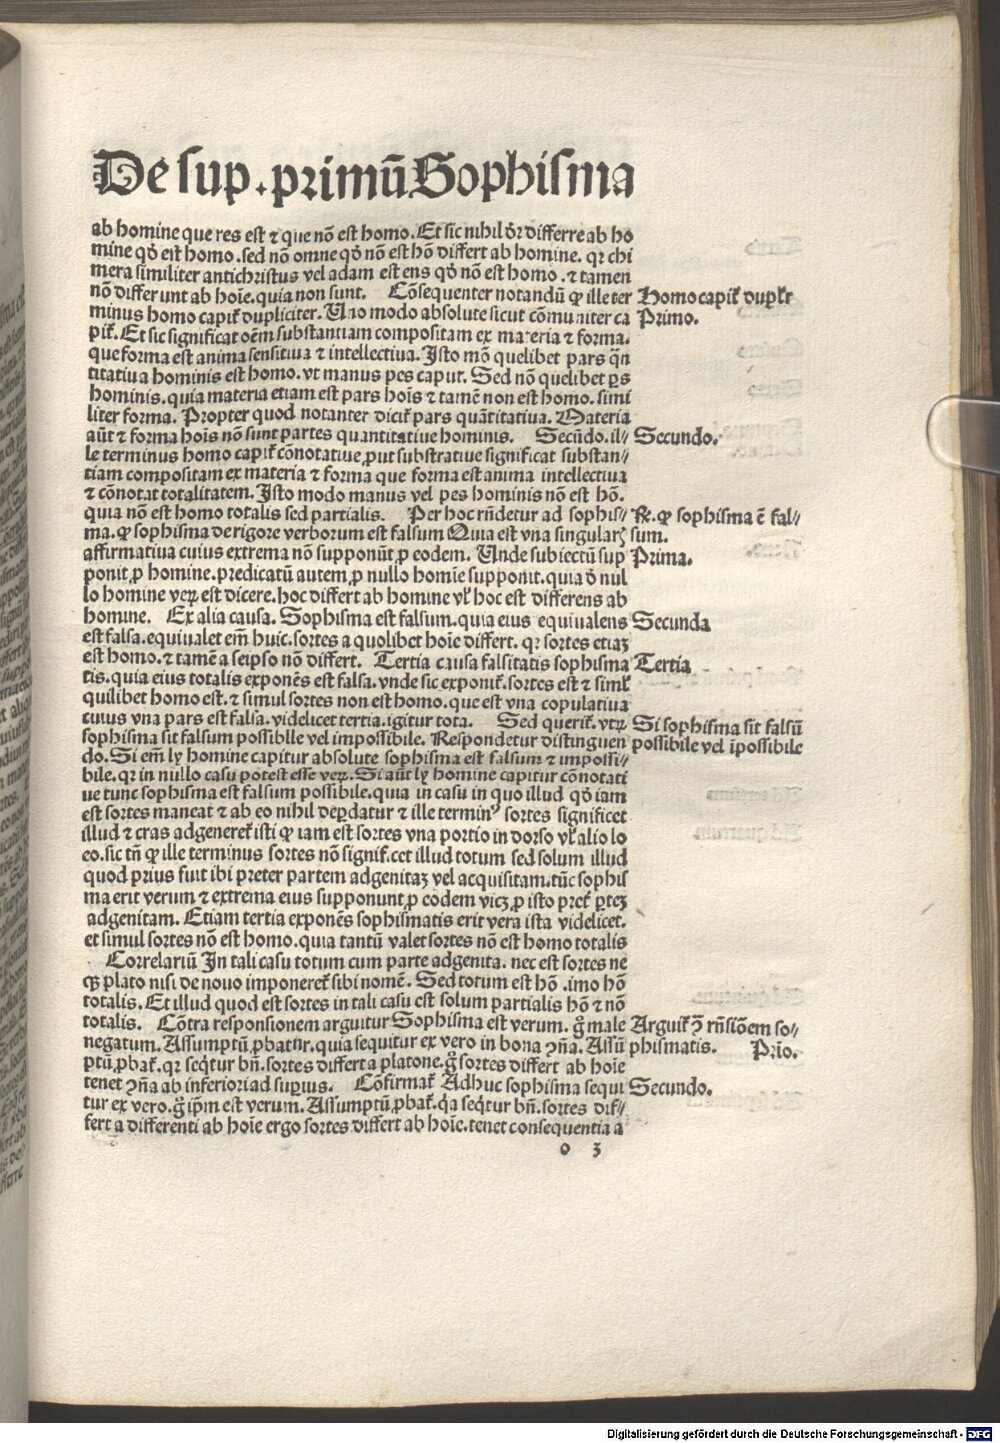 De sup̲. primū Sophisma
ab homine que res est ⁊ que nō est homo. Et sic nihil dr̄ differre ab ho
mine qd̄ est homo. sed nō omne qd̄ nō est hō differt ab homine. qr chi
mera similiter antichristus vel adam est ens qd̄ nō est homo. ⁊ tamen
nō differunt ab hoīe. quia non sunt. Cōsequenter notandū ꝙ ille ter
Homo capit᷑ dupl̄r
minus homo capit᷑ dupliciter. Uno modo absolute sicut cōmuniter ca
Primo.
pit᷑. Et sic significat oēm substantiam compositam ex materia ⁊ forma.
que forma est anima sensitiua ⁊ intellectiua. Isto mō quelibet pars quā
titatiua hominis est homo. vt manus pes caput. Sed nō quelibet ꝑs
hominis. quia materia etiam est pars hoīs ⁊ tamē non est homo. simi
liter forma. Propter quod notanter dicit᷑ pars quātitatiua. Materia
aūt ⁊ forma hoīs nō sunt partes quantitatiue hominis. Secūdo. il⸗
Secundo.
le terminus homo capit᷑ cōnotatiue ꝓut substratiue significat substan⸗
tiam compositam ex materia ⁊ forma que forma est anima intellectiua
⁊ cōnotat totalitatem. Isto modo manus vel pes hominis nō est hō.
quia nō est homo totalis sed partialis. Per hoc rn̄detur ad sophis⸗
℞. ꝙ sophisma ē fal⸗
ma. ꝙ sophisma de rigore verborum est falsum Quia est vna singularꝭ
sum.
affirmatiua cuius extrema nō supponūt ꝓ eodem. Unde subiectū sup
Prima.
ponit ꝓ homine. predicatū autem ꝓ nullo homīe supponit. quia d̄ nul
lo homine veꝝ est dicere. hoc differt ab homine vl̄ hoc est differens ab
homine. Ex alia causa. Sophisma est falsum. quia eius equiualens
Secunda
est falsa. equiualet em̄ huic. sortes a quolibet hoīe differt. qr sortes etiaꝫ
est homo. ⁊ tamē a seipso nō differt. Tertia causa falsitatis sophisma
Tertia
tis. quia eius totalis exponēs est falsa. vnde sic exponit᷑. sortes est ⁊ siml̄
quilibet homo est. ⁊ simul sortes non est homo. que est vna copulatiua
cuius vna pars est falsa. videlicet tertia. igitur tota. Sed querit᷑. vtꝝ
Si sophisma sit falsū
sophisma sit falsum possibile vel impossibile. Respondetur distinguen
possibile vel īpossibile
do. Si em̄ ly homine capitur absolute sophisma est falsum ⁊ impossi⸗
bile. qr in nullo casu potest esse veꝝ. Si aūt ly homine capitur cōnotati
ue tunc sophisma est falsum possibile. quia in casu in quo illud qd̄ iam
est sortes maneat ⁊ ab eo nihil deꝑdatur ⁊ ille terminꝰ sortes significet
illud ⁊ cras adgeneret᷑ isti ꝙ iam est sortes vna portio in dorso vl̄ alio lo
co. sic tn̄ ꝙ ille terminus sortes nō significet illud totum sed solum illud
quod prius fuit ibi preter partem adgenitaꝫ vel acquisitam. tūc sophis
ma erit verum ⁊ extrema eius supponunt ꝓ eodem vicꝫ ꝓ isto pret᷑ ꝑteꝫ
adgenitam. Etiam tertia exponēs sophismatis erit vera ista videlicet.
et simul sortes nō est homo. quia tantū valet sortes nō est homo totalis
Correlariū In tali casu totum cum parte adgenita. nec est sortes ne
qꝫ plato nisi de nouo imponeret᷑ sibi nomē. Sed totum est hō. imo hō
totalis. Et illud quod est sortes in tali casu est solum partialis hō ⁊ nō
totalis. Cōtra responsionem arguitur Sophisma est verum. gͦ male
Arguit᷑ ꝯ rn̄siōem so⸗
negatum. Assumptū ꝓbatur. quia sequitur ex vero in bona ꝯn̄a. Assū
phismatis. Prīo.
ptū ꝓbat᷑. qr seqͥtur bn̄. sortes differt a platone. gͦ sortes differt ab hoīe
tenet ꝯn̄a ab inferiori ad suꝑius. Cōfirmat᷑ Adhuc sophisma sequi
Secundo.
tur ex vero. gͦ ip̄m est verum. Assumptū ꝓbat᷑. qa seqͥtur bn̄. sortes dif⸗
fert a differenti ab hoīe ergo sortes differt ab hoīe. tenet consequentia a
o 3
Digitalisierung gefördert durch die Deutsche Forschungsgemeinschaft - DFG